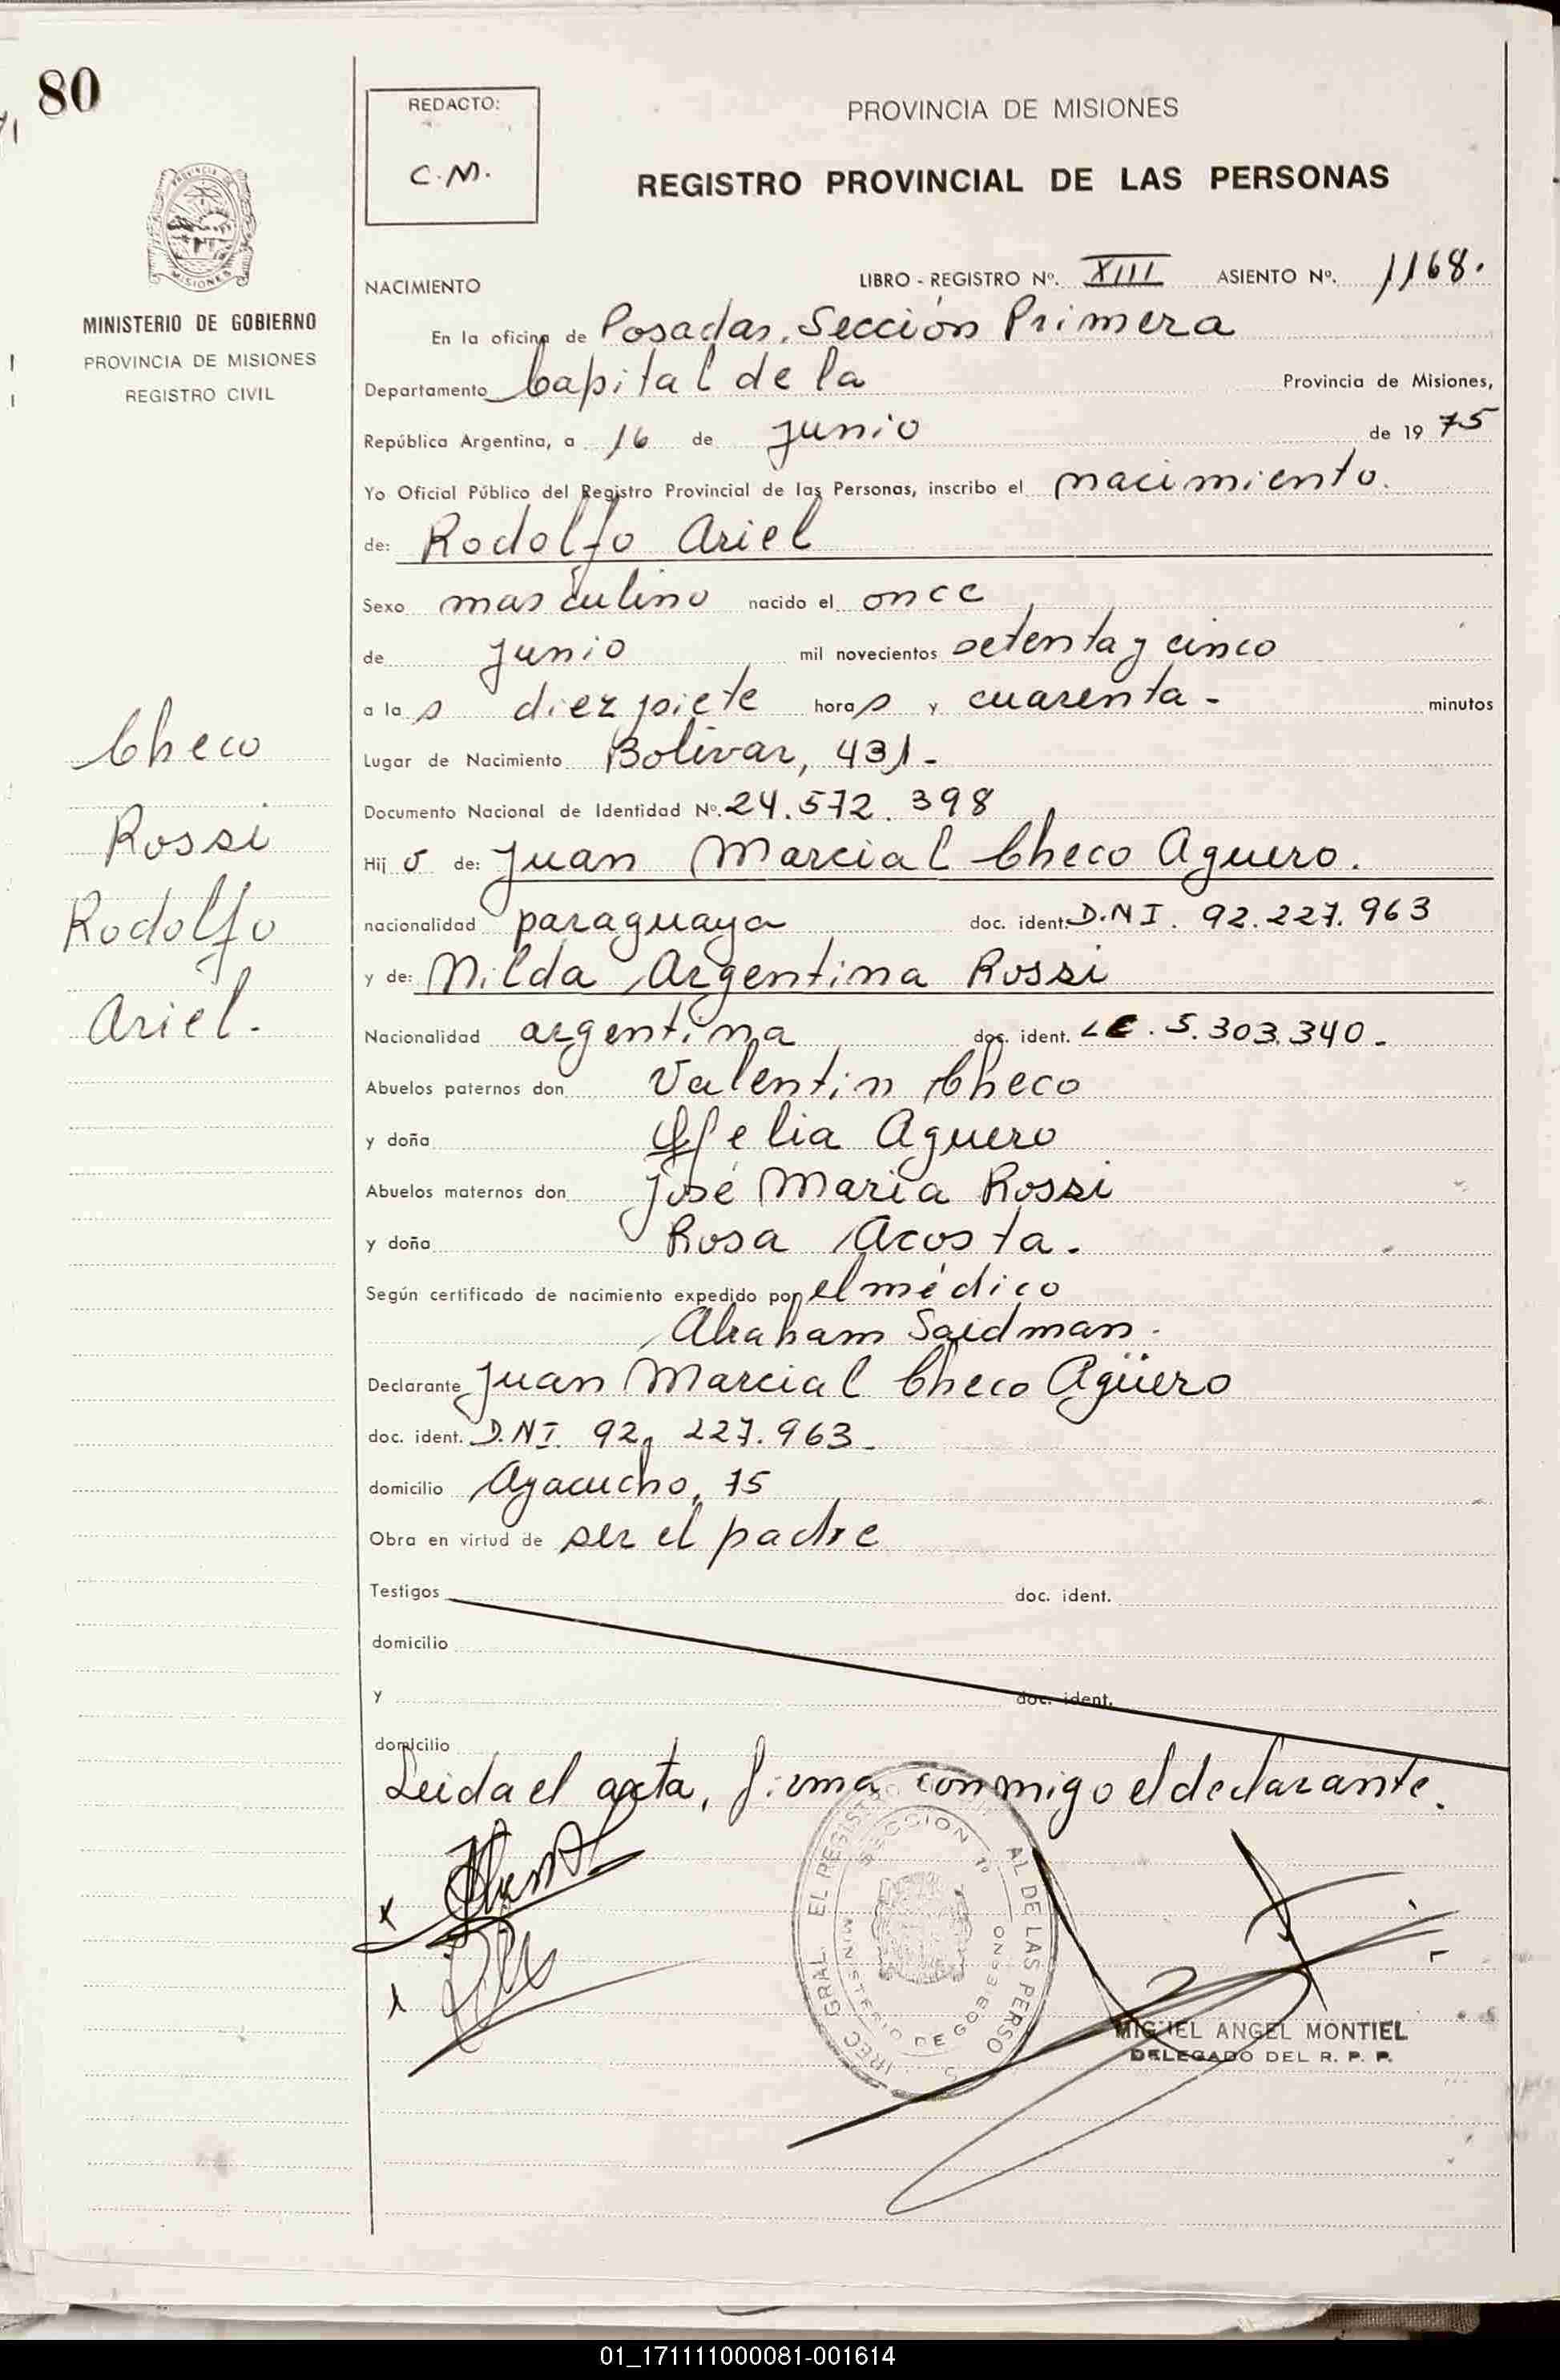 80
REDACTO:
C.M.
PROVINCIA DE MISIONES
REGISTRO PROVINCIAL DE LAS PERSONAS
MINISTERIO DE GOBIERNO
PROVINCIA DE MISIONES
REGISTRO CIVIL
NACIMIENTO
LIBRO - REGISTRO Nº. XIII ASIENTO Nº. 1168.
En la oficina de Posadas, Sección Primera
Departamento Capital de la Provincia de Misiones,
República Argentina, a 16 de junio de 1975
Yo Oficial Público del Registro Provincial de las Personas, inscribo el nacimiento.
de: Rodolfo Ariel
Sexo masculino nacido el once
de junio mil novecientos setenta y cinco
a las diez siete horas y cuarenta - minutos
Lugar de Nacimiento Bolivar, 431 -
Documento Nacional de Identidad Nº. 24.572.398
Hijo de: Juan Marcial Checo Aguero.
nacionalidad paraguaya doc. ident. D.N I. 92.227.963
y de: Nilda Argentina Rossi
Nacionalidad argentina doc. ident. LC. 5.303.340 -
Abuelos paternos don Valentin Checo
y doña Ofelia Aguero
Abuelos maternos don José Maria Rossi
y doña Rosa Acosta.
Según certificado de nacimiento expedido por el médico
Abraham Saidman.
Declarante Juan Marcial Checo Agüero
doc. ident. D.NI. 92, 227.963 -
domicilio Ayacucho, 75
Obra en virtud de ser el padre
Testigos doc. ident.
domicilio
y doc. ident.
domicilio
Leida el acta, firma conmigo el declarante.
Checo
Rossi
Rodolfo
Ariel.
SECCION 1º
MINISTERIO DE GOBIERNO
MIGUEL ANGEL MONTIEL
DELEGADO DEL R. P. P.
01_171111000081-001614